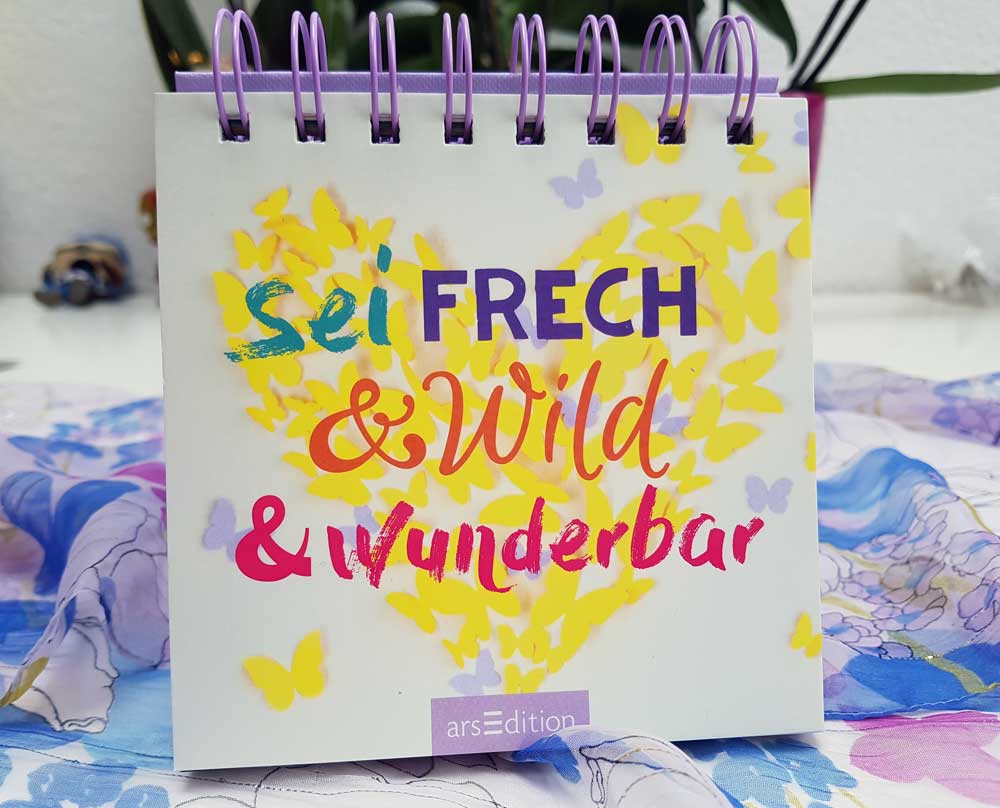 sei FRECH
& Wild
& wunderbar
arsEdition